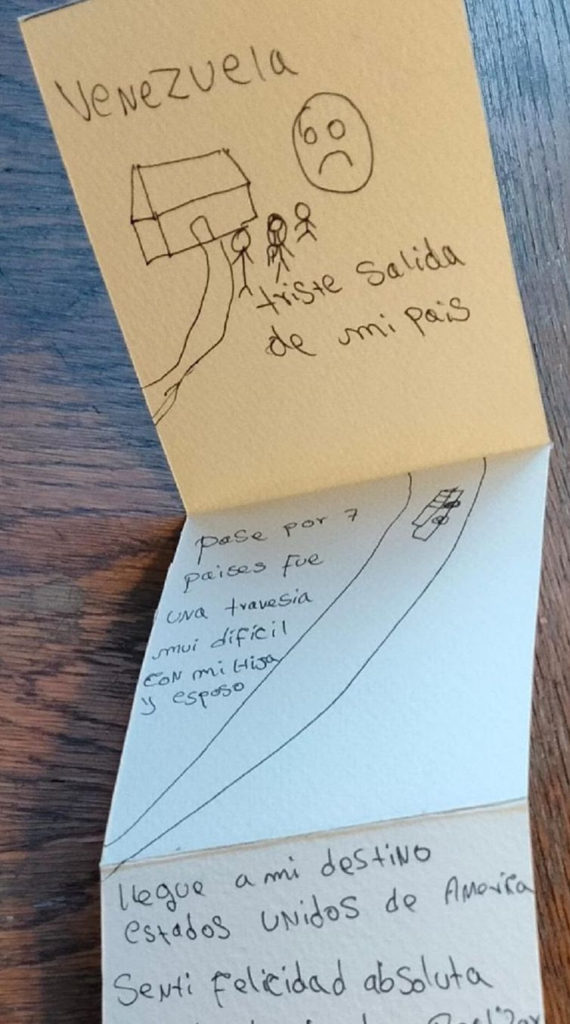 Venezuela
triste salida
de mi pais
pase por 7
paises fue
una travesia
mui dificil
con mi Hija
y esposo
llegue a mi destino
estados unidos de America
Senti felicidad absoluta